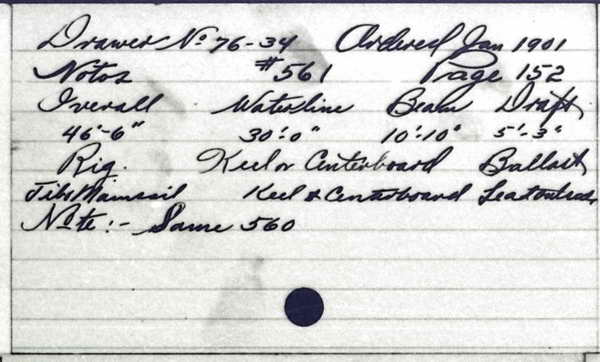 Drawer No 76-34 Ordered Jan 1901
Notos #561 Page 152
Overall Waterline Beam Draft
46'-6" 30'-0" 10'-10" 5'-3"
Rig. Keel or Centerboard Ballast
Jib & Mainsail Keel & Centerboard Lead outside
Note:- Same 560